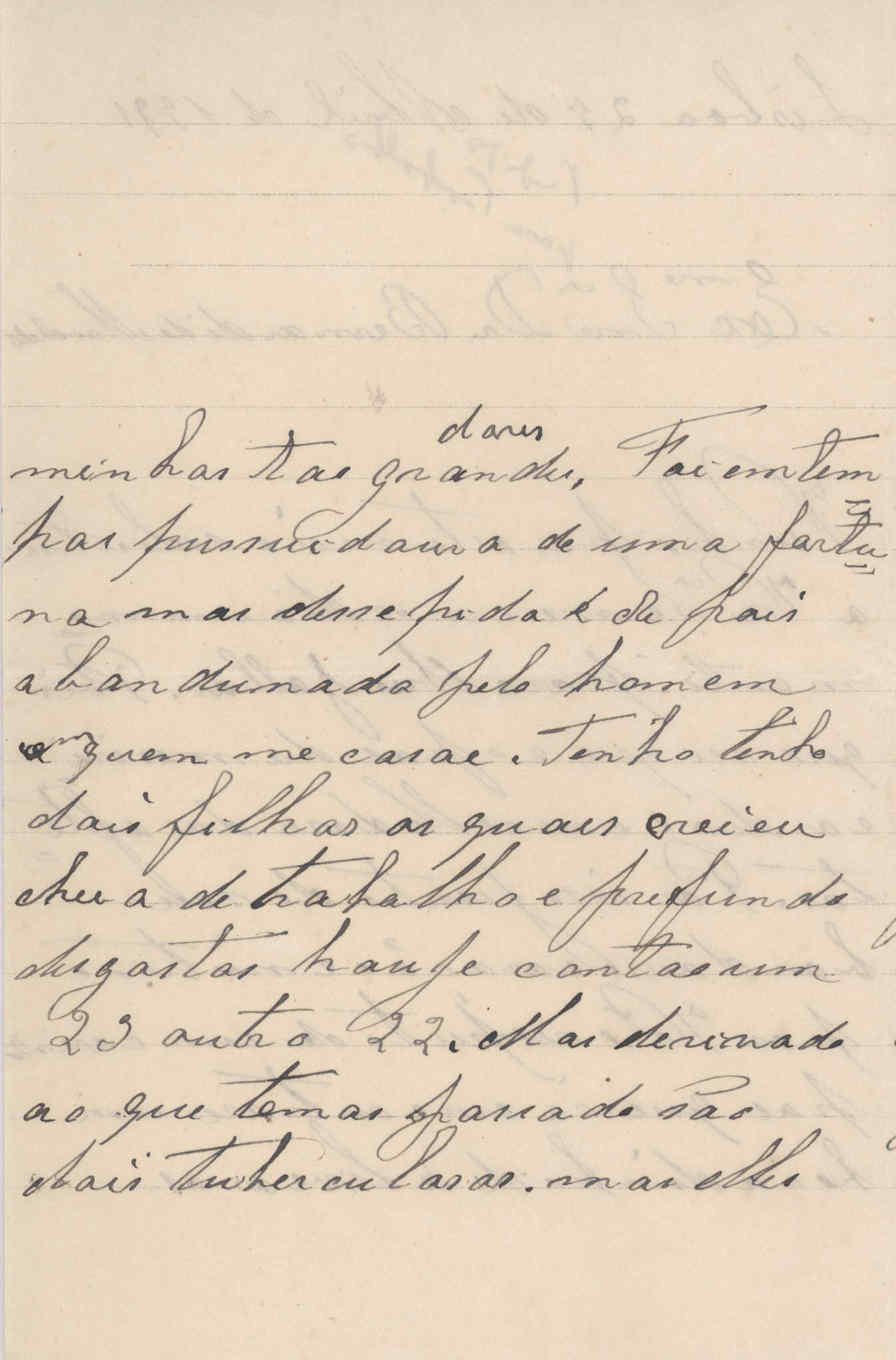 dores
minhas tao grandes, Foi em tem
pos pussuidoura de uma fortu
na mas dessepida e de pois
abandunada pelo homem
quem me casae. Tenho tinho
dois filhos os quaes creieu
cheia de trabalho e profundo
desgostos houje contao um
23 outro 22. Mas derivado
ao que temos passado são
dois tuberculosos. mas elles